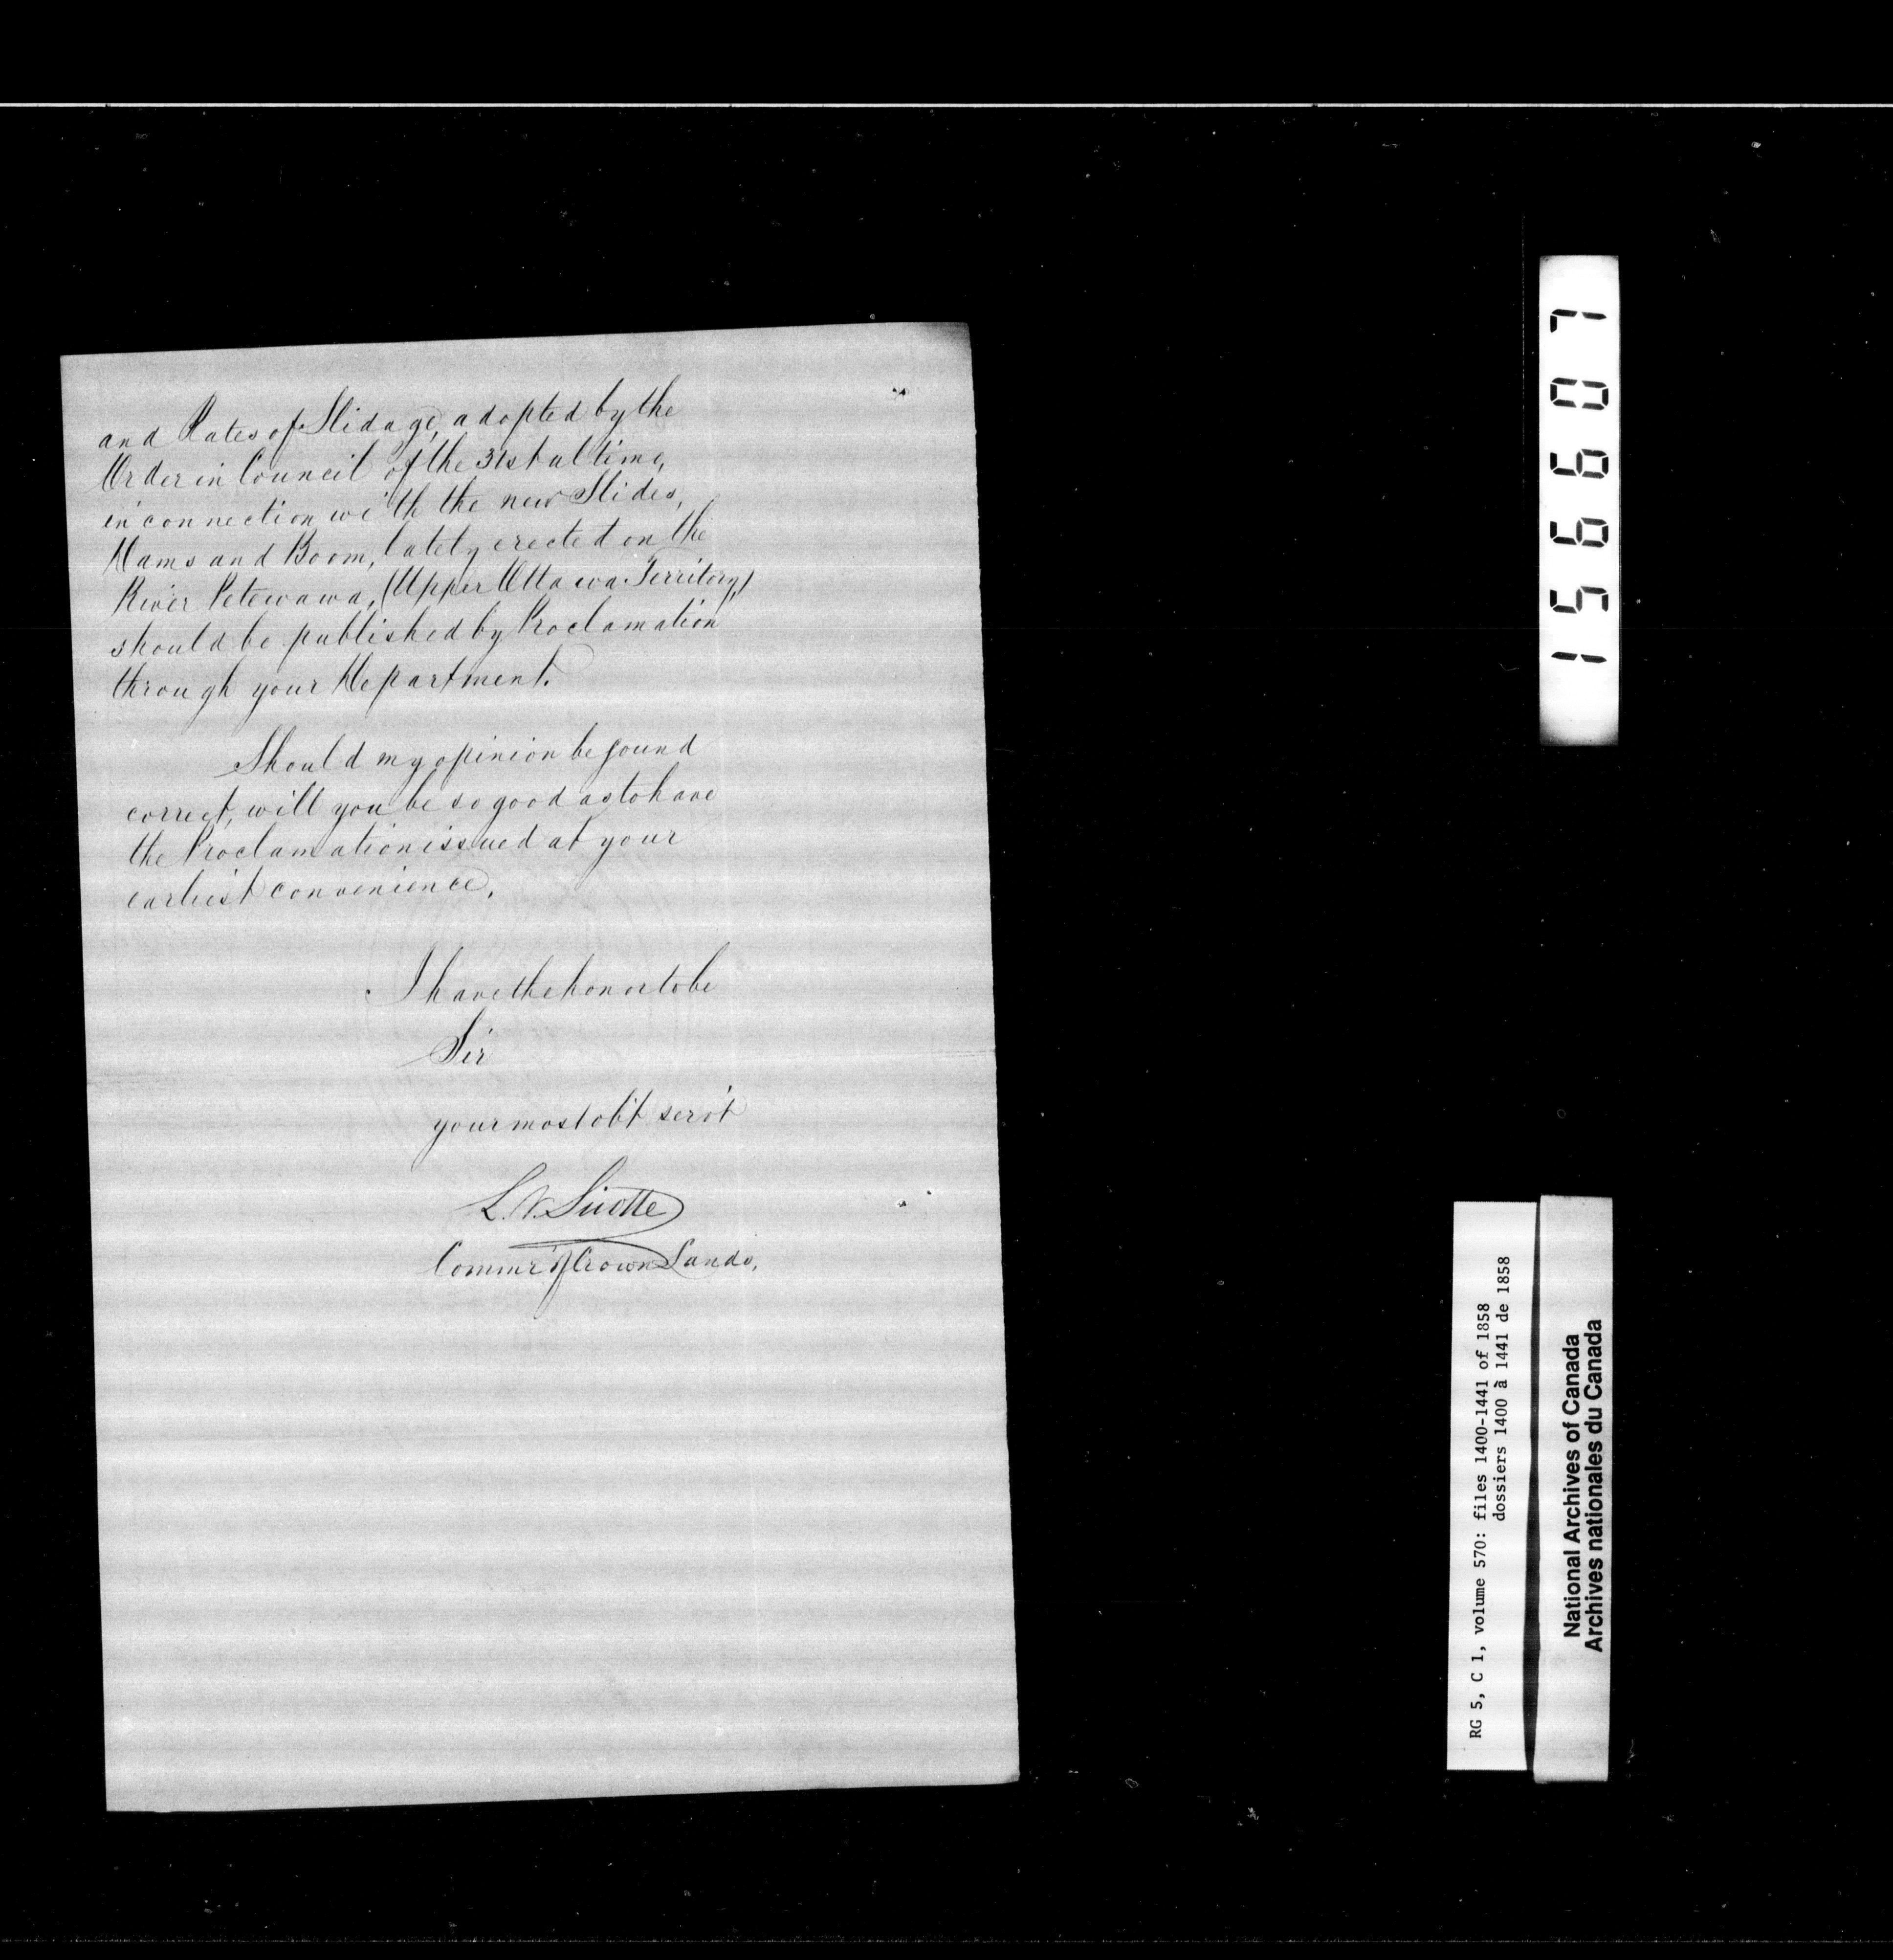 and Rates of Slidage, adopted by the
Order in Council of the 31st ultimo,
in connection with the new Slides,
Dams and Boom, lately erected on the
River Petewawa, (Upper Ottawa Territory,)
should be published by Proclamation
through your Department.
Should my opinion be found
correct, will you be so good as to have
the Proclamation issued at your
earliest convenience.
I have the honor to be
Sir
your most obt servt
L. V. Sicotte
Commr of Crown Lands.
156607
RG 5, C 1, volume 570: files 1400-1441 of 1858
dossiers 1400 à 1441 de 1858
National Archives of Canada
Archives nationales du Canada